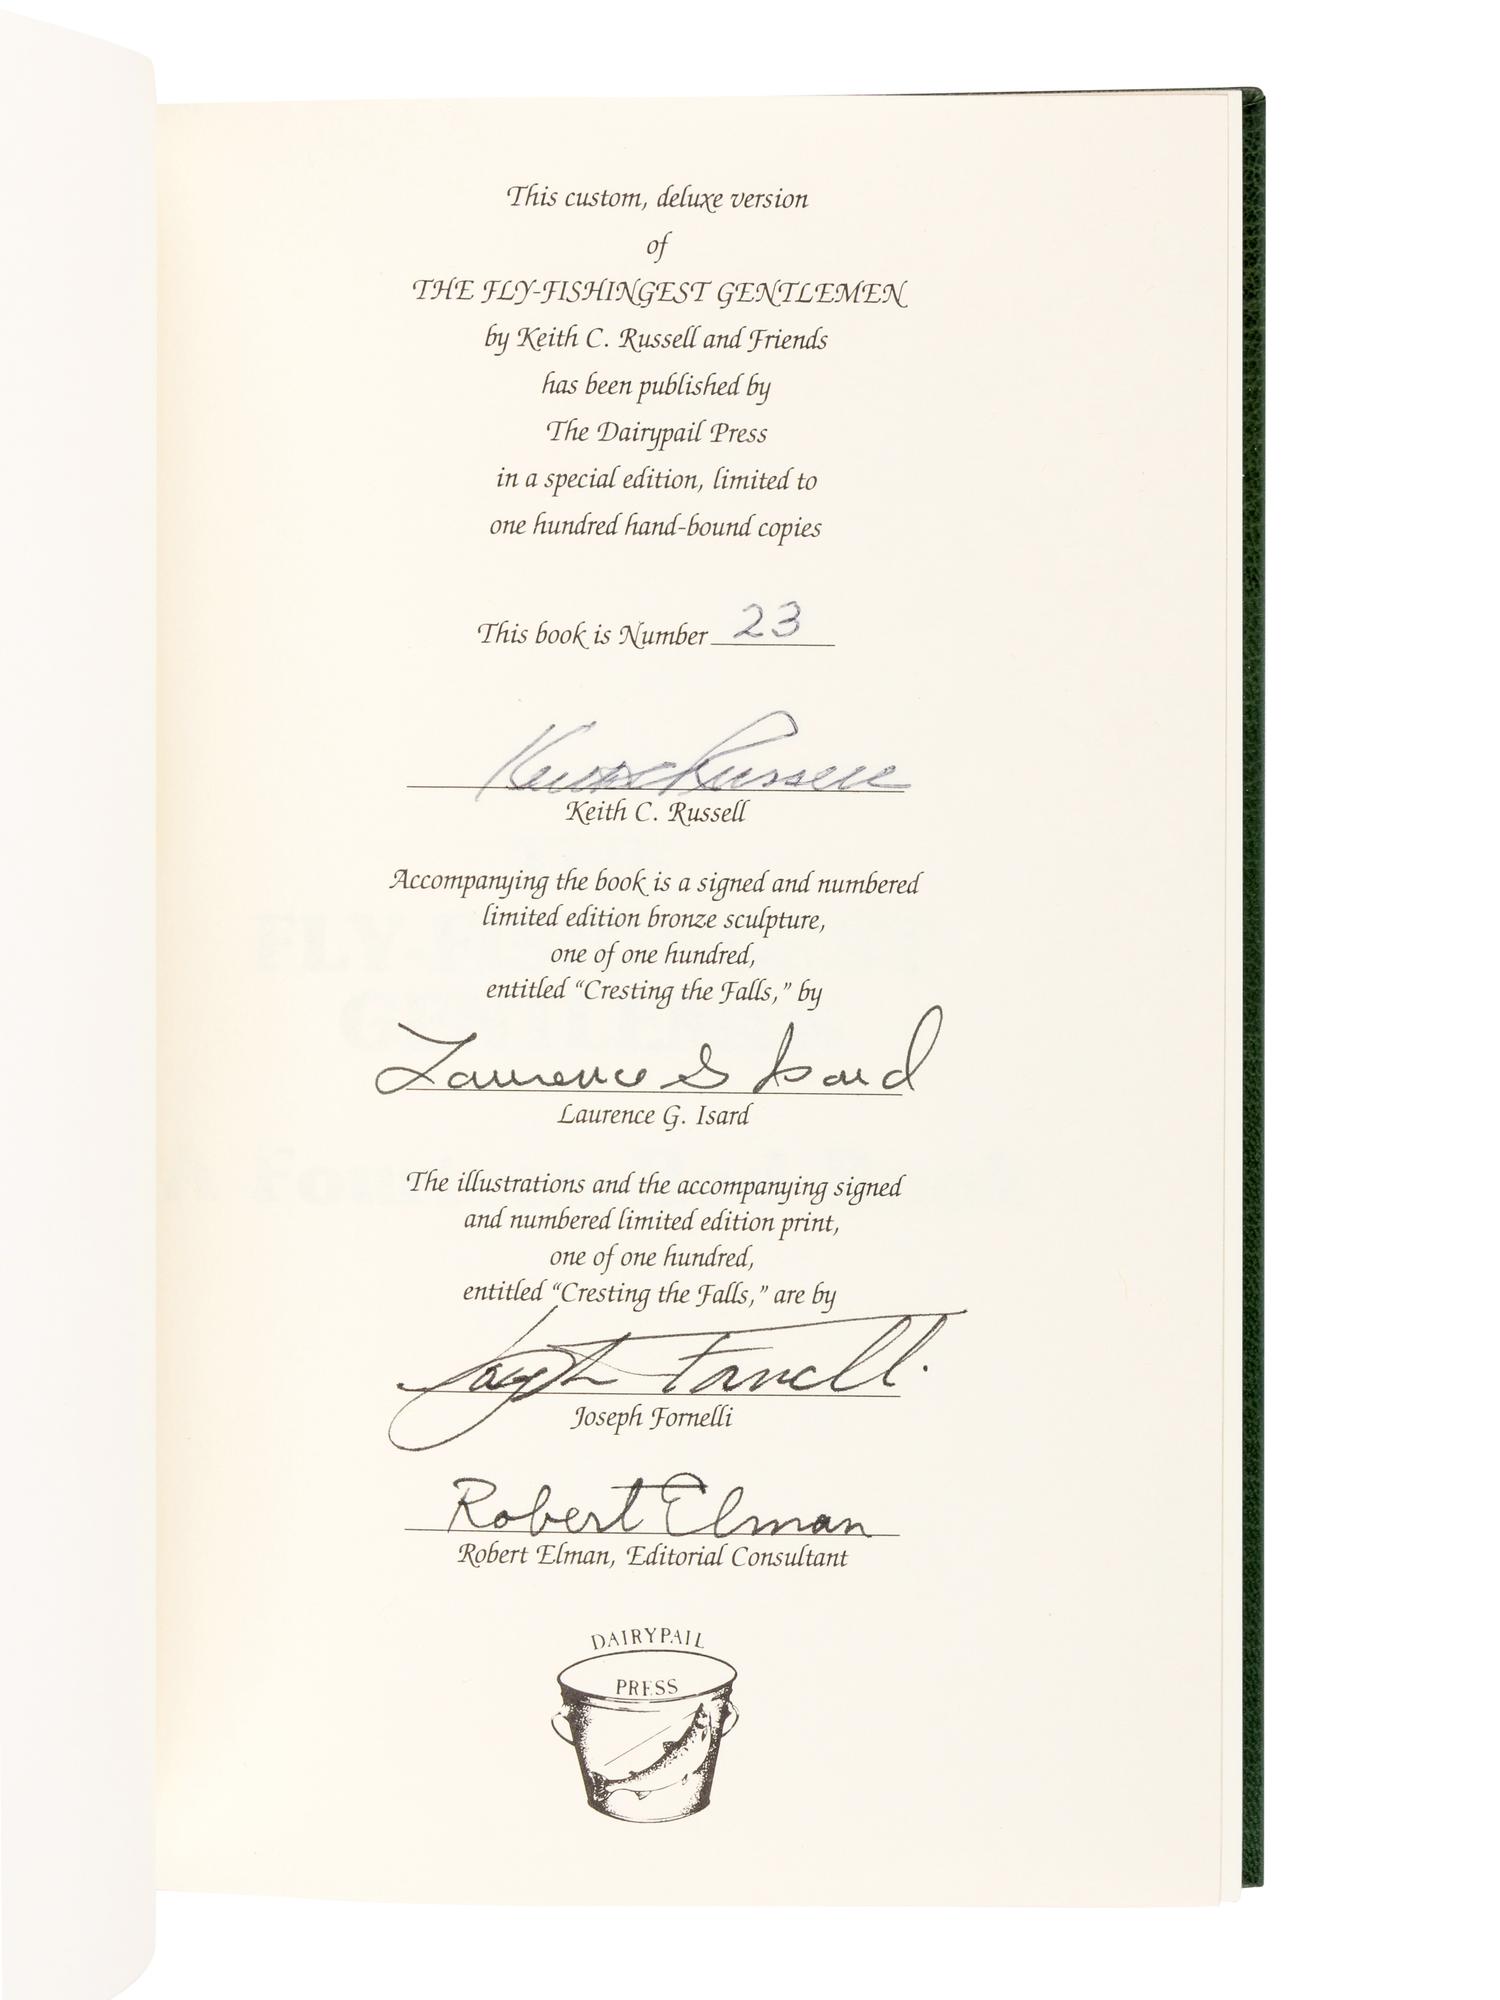 This custom, deluxe version
of
THE FLY-FISHINGEST GENTLEMEN
by Keith C. Russell and Friends
has been published by
The Dairypail Press
in a special edition, limited to
one hundred hand-bound copies
This book is Number 23
Keith C Russell
Keith C. Russell
Accompanying the book is a signed and numbered
limited edition bronze sculpture,
one of one hundred,
entitled “Cresting the Falls,” by
Laurence G Isard
Laurence G. Isard
The illustrations and the accompanying signed
and numbered limited edition print,
one of one hundred,
entitled “Cresting the Falls,” are by
Joseph Fornelli
Joseph Fornelli
Robert Elman
Robert Elman, Editorial Consultant
DAIRYPAIL
PRESS